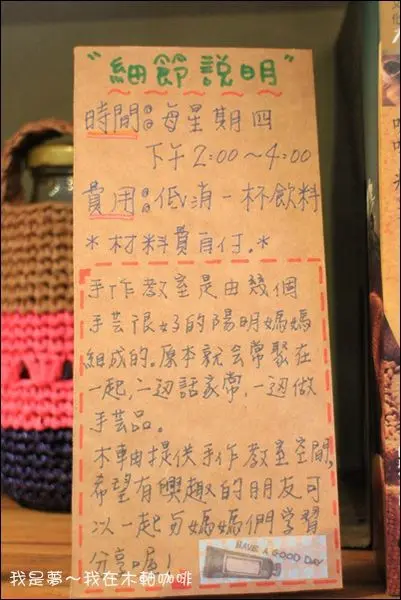 "細節說明"
時間：每星期四
下午2:00～4:00
費用：低消一杯飲料
*材料費自付。*
手作教室是由幾個
手芸很好的陽明媽媽
組成的。原本就会常聚在
一起，一边話家常，一边做
手芸品。
木軸提供手作教室空間，
希望有興趣的朋友可
以一起與媽媽們學習
分享喔！
HAVE A GOOD DAY
我是夢～我在木軸咖啡